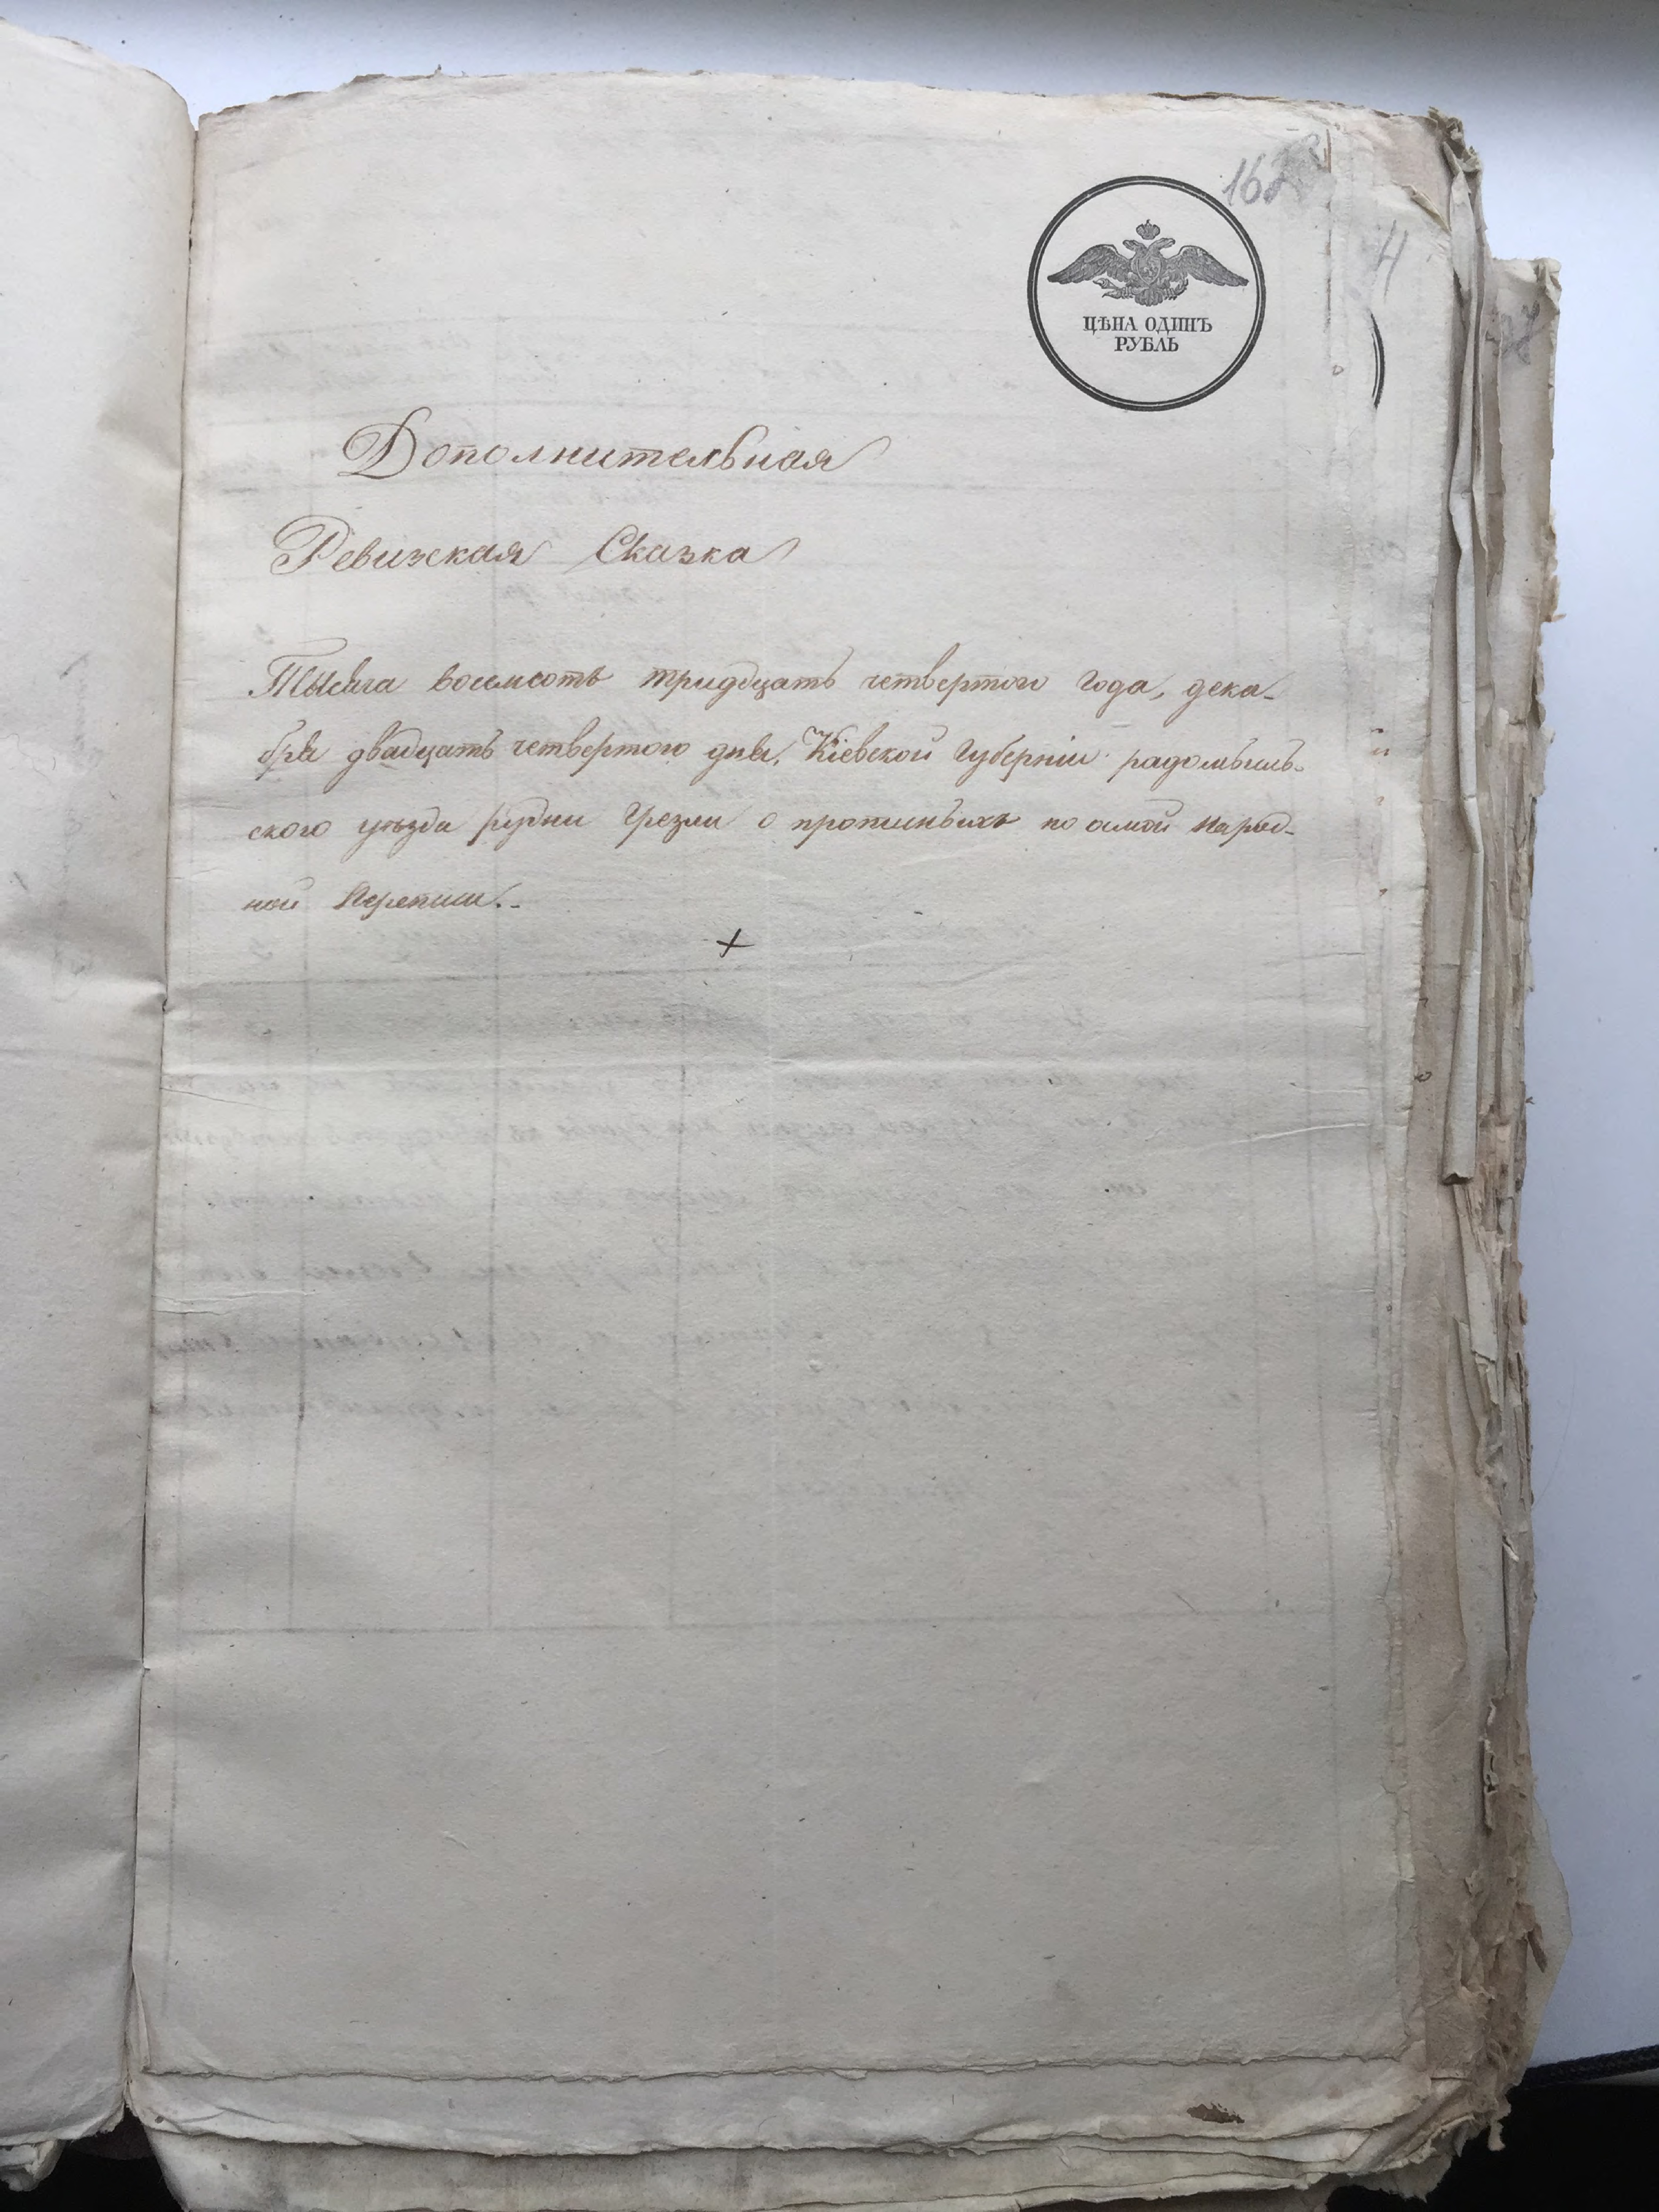 4
ЦѢНА ОДИНЪ
РУБЛЬ
Дополнительная
Ревизская Сказка
Тысяча восемсотъ тридцать четвертого года, дека-
бря двадцать четвертого дня, Кіевской Губерніи радомысль-
ского уѣзда рудни Грезли о прописныхъ по осмой Народ-
ной Переписи.